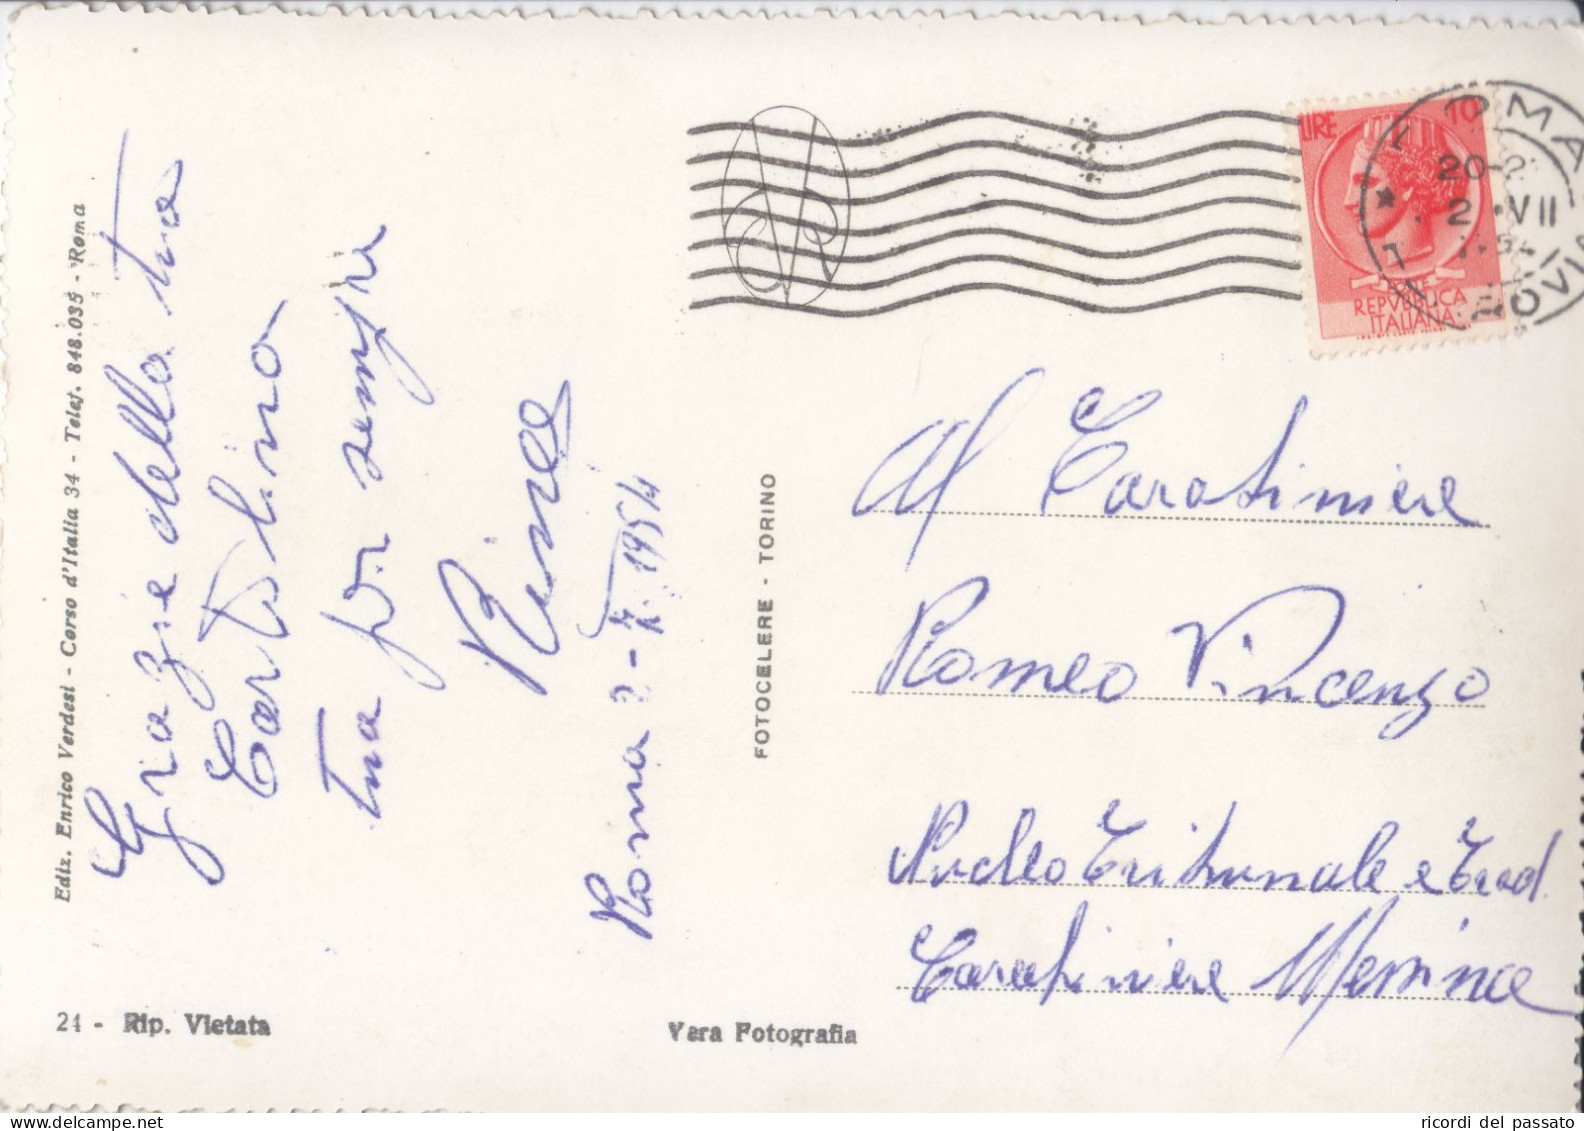 Ediz. Enrico Verdesi - Corso d'Italia 34 - Telef. 848.035 - Roma
Grazie della tua
Cartolina
tua per sempre
Roma 2-7-1954
FOTOCELERE - TORINO
LIRE 10
REPVBBLICA
ITALIANA
ROMA
20-2
2 VII
Al Carabiniere
Romeo Vincenzo
Nucleo Tribunale e Trad.
Carabiniere Messina
24 - Rip. Vietata
Vera Fotografia
ricordi del passato